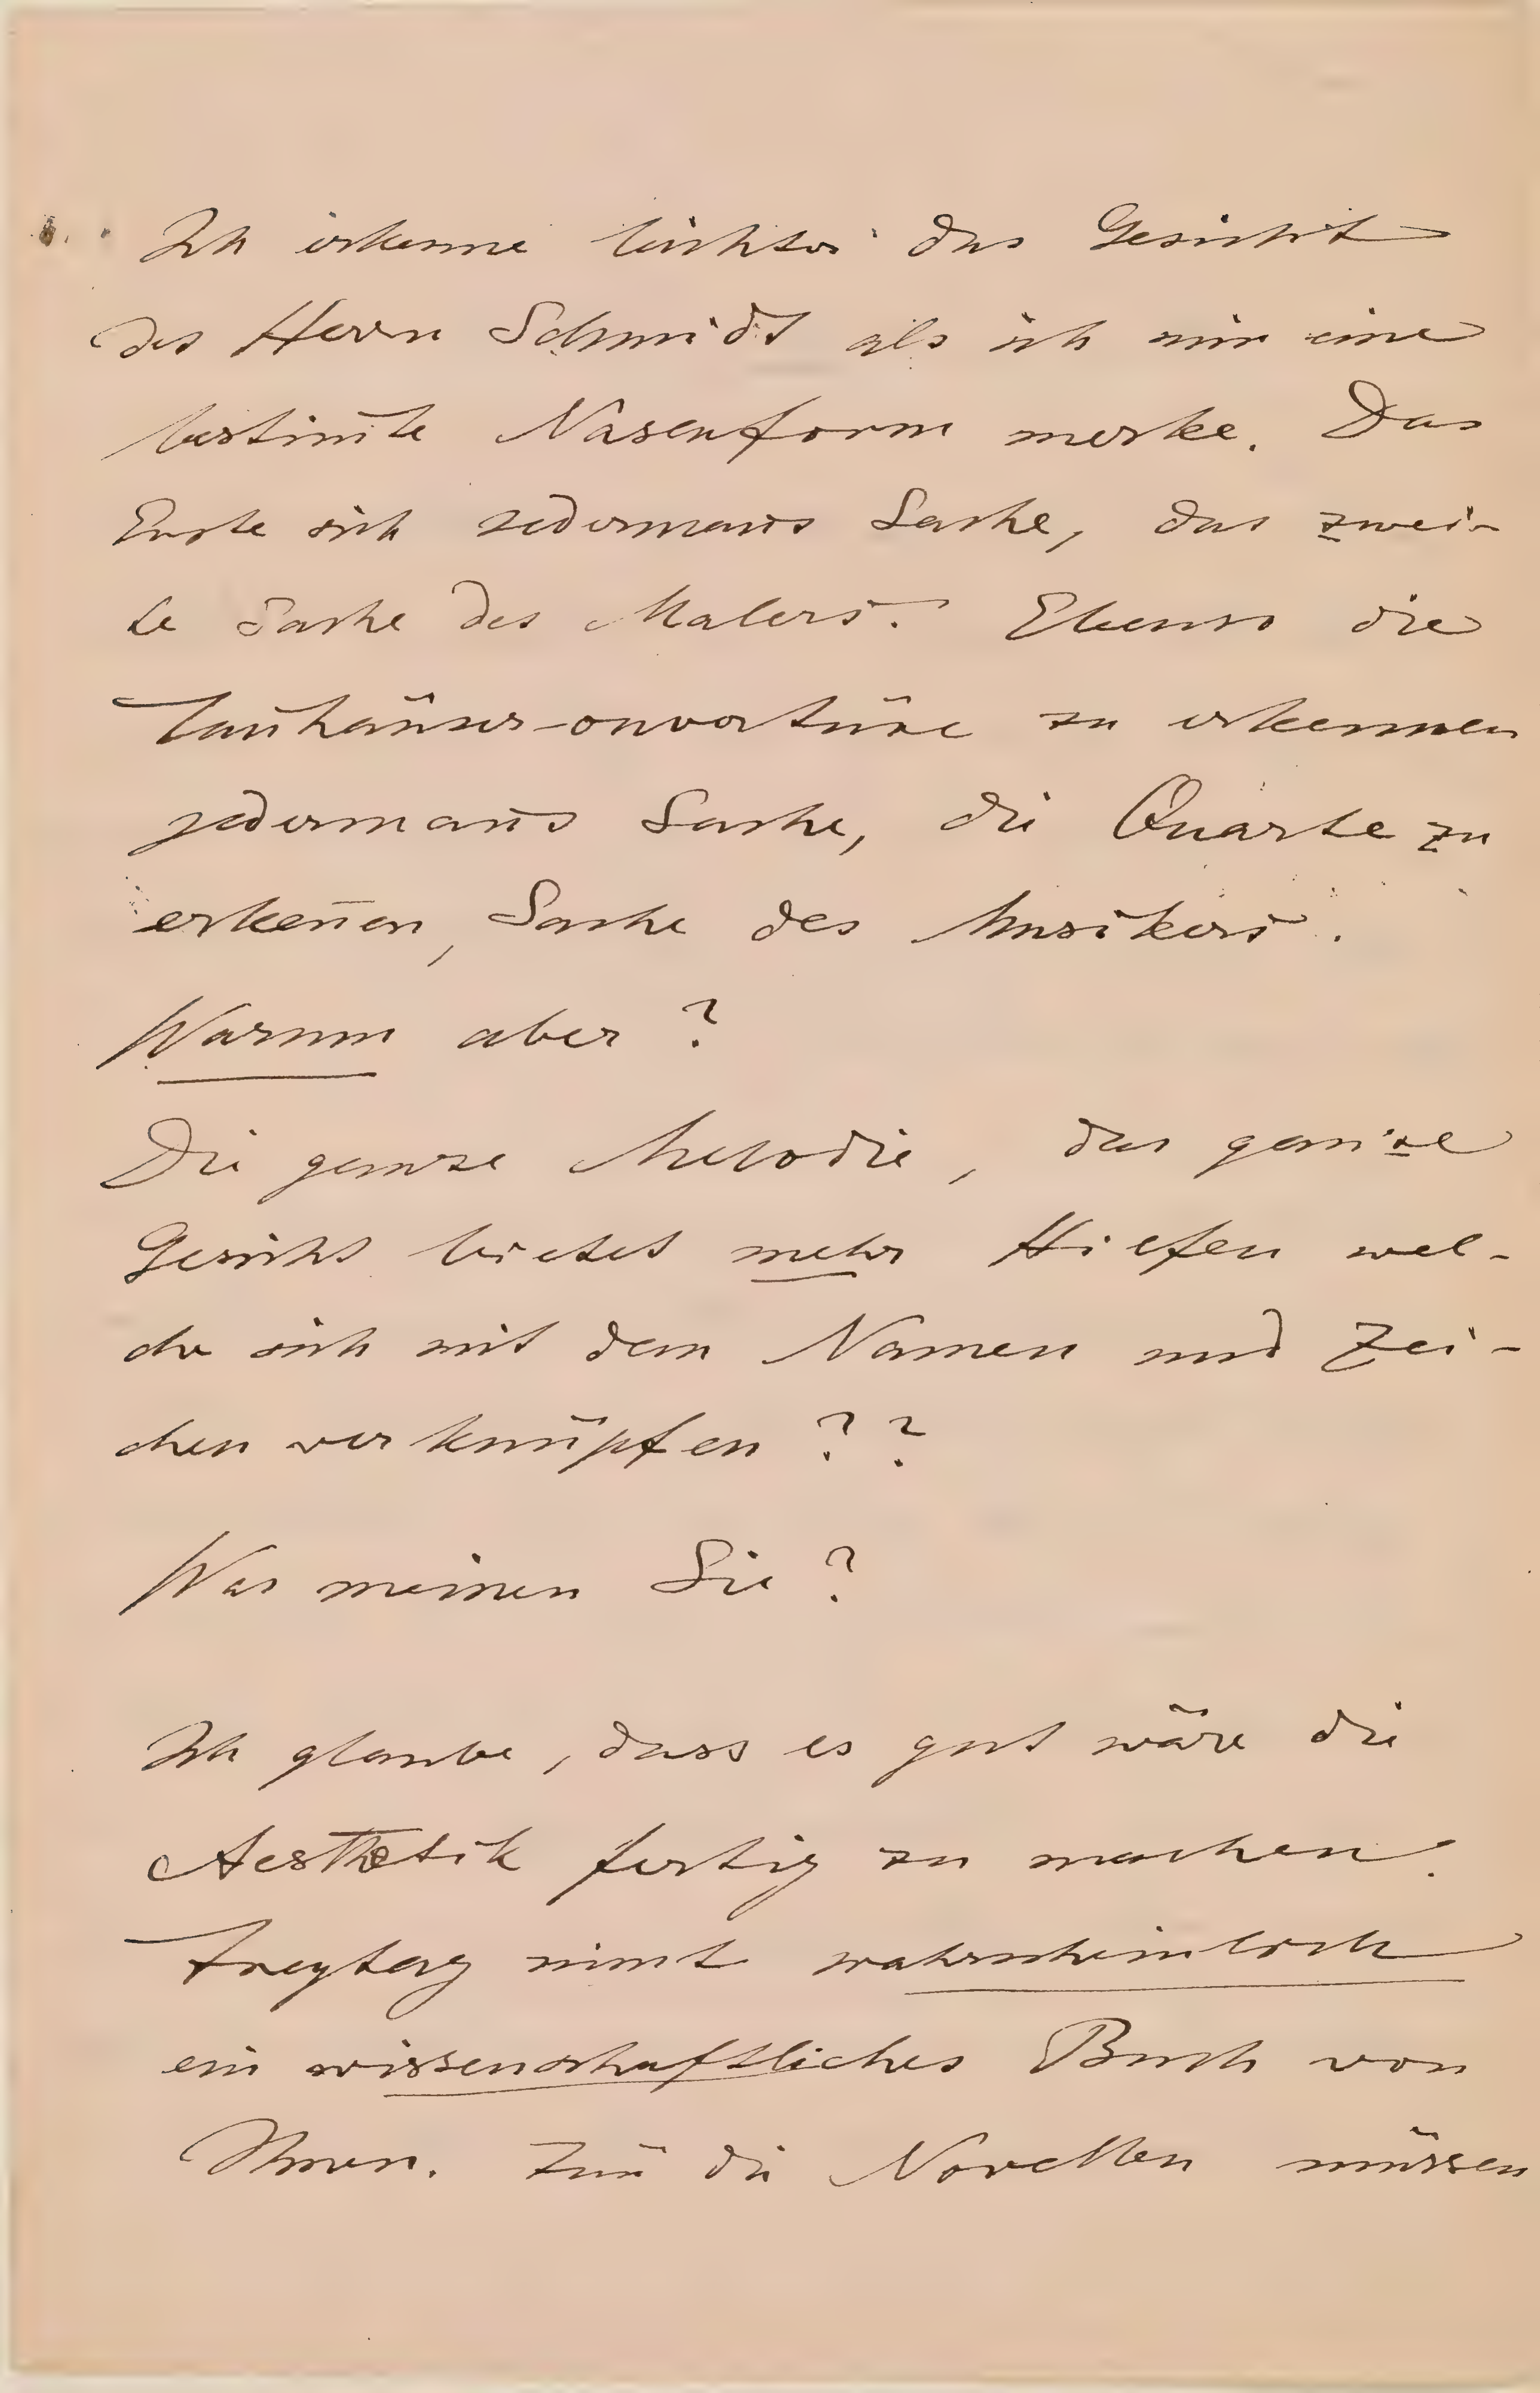 Ich erkenne leichter das Gesicht
des Herrn Schmidt als ich mir eine
bestim̅te Nasenform merke. Das
Erste ist jederman̅s Sache, das zwei-
te Sache des Malers. Ebenso die
Tan̅häuser-ouvertüre zu erkennen
jederman̅s Sache, die Quarte zu
erken̅en, Sache des Musikers.
Warum aber?
Die ganze Melodie, das ganze
Gesicht bietet mehr Hilfen wel-
che sich mit dem Namen und Zei-
chen verknüpfen??
Was meinen Sie?
Ich glaube, dass es gut wäre die
Aesthetik fertig zu machen.
Freytag nim̅t wahrscheinlich
ein wissenschaftliches Buch von
Ihnen. Für die Novellen müssen